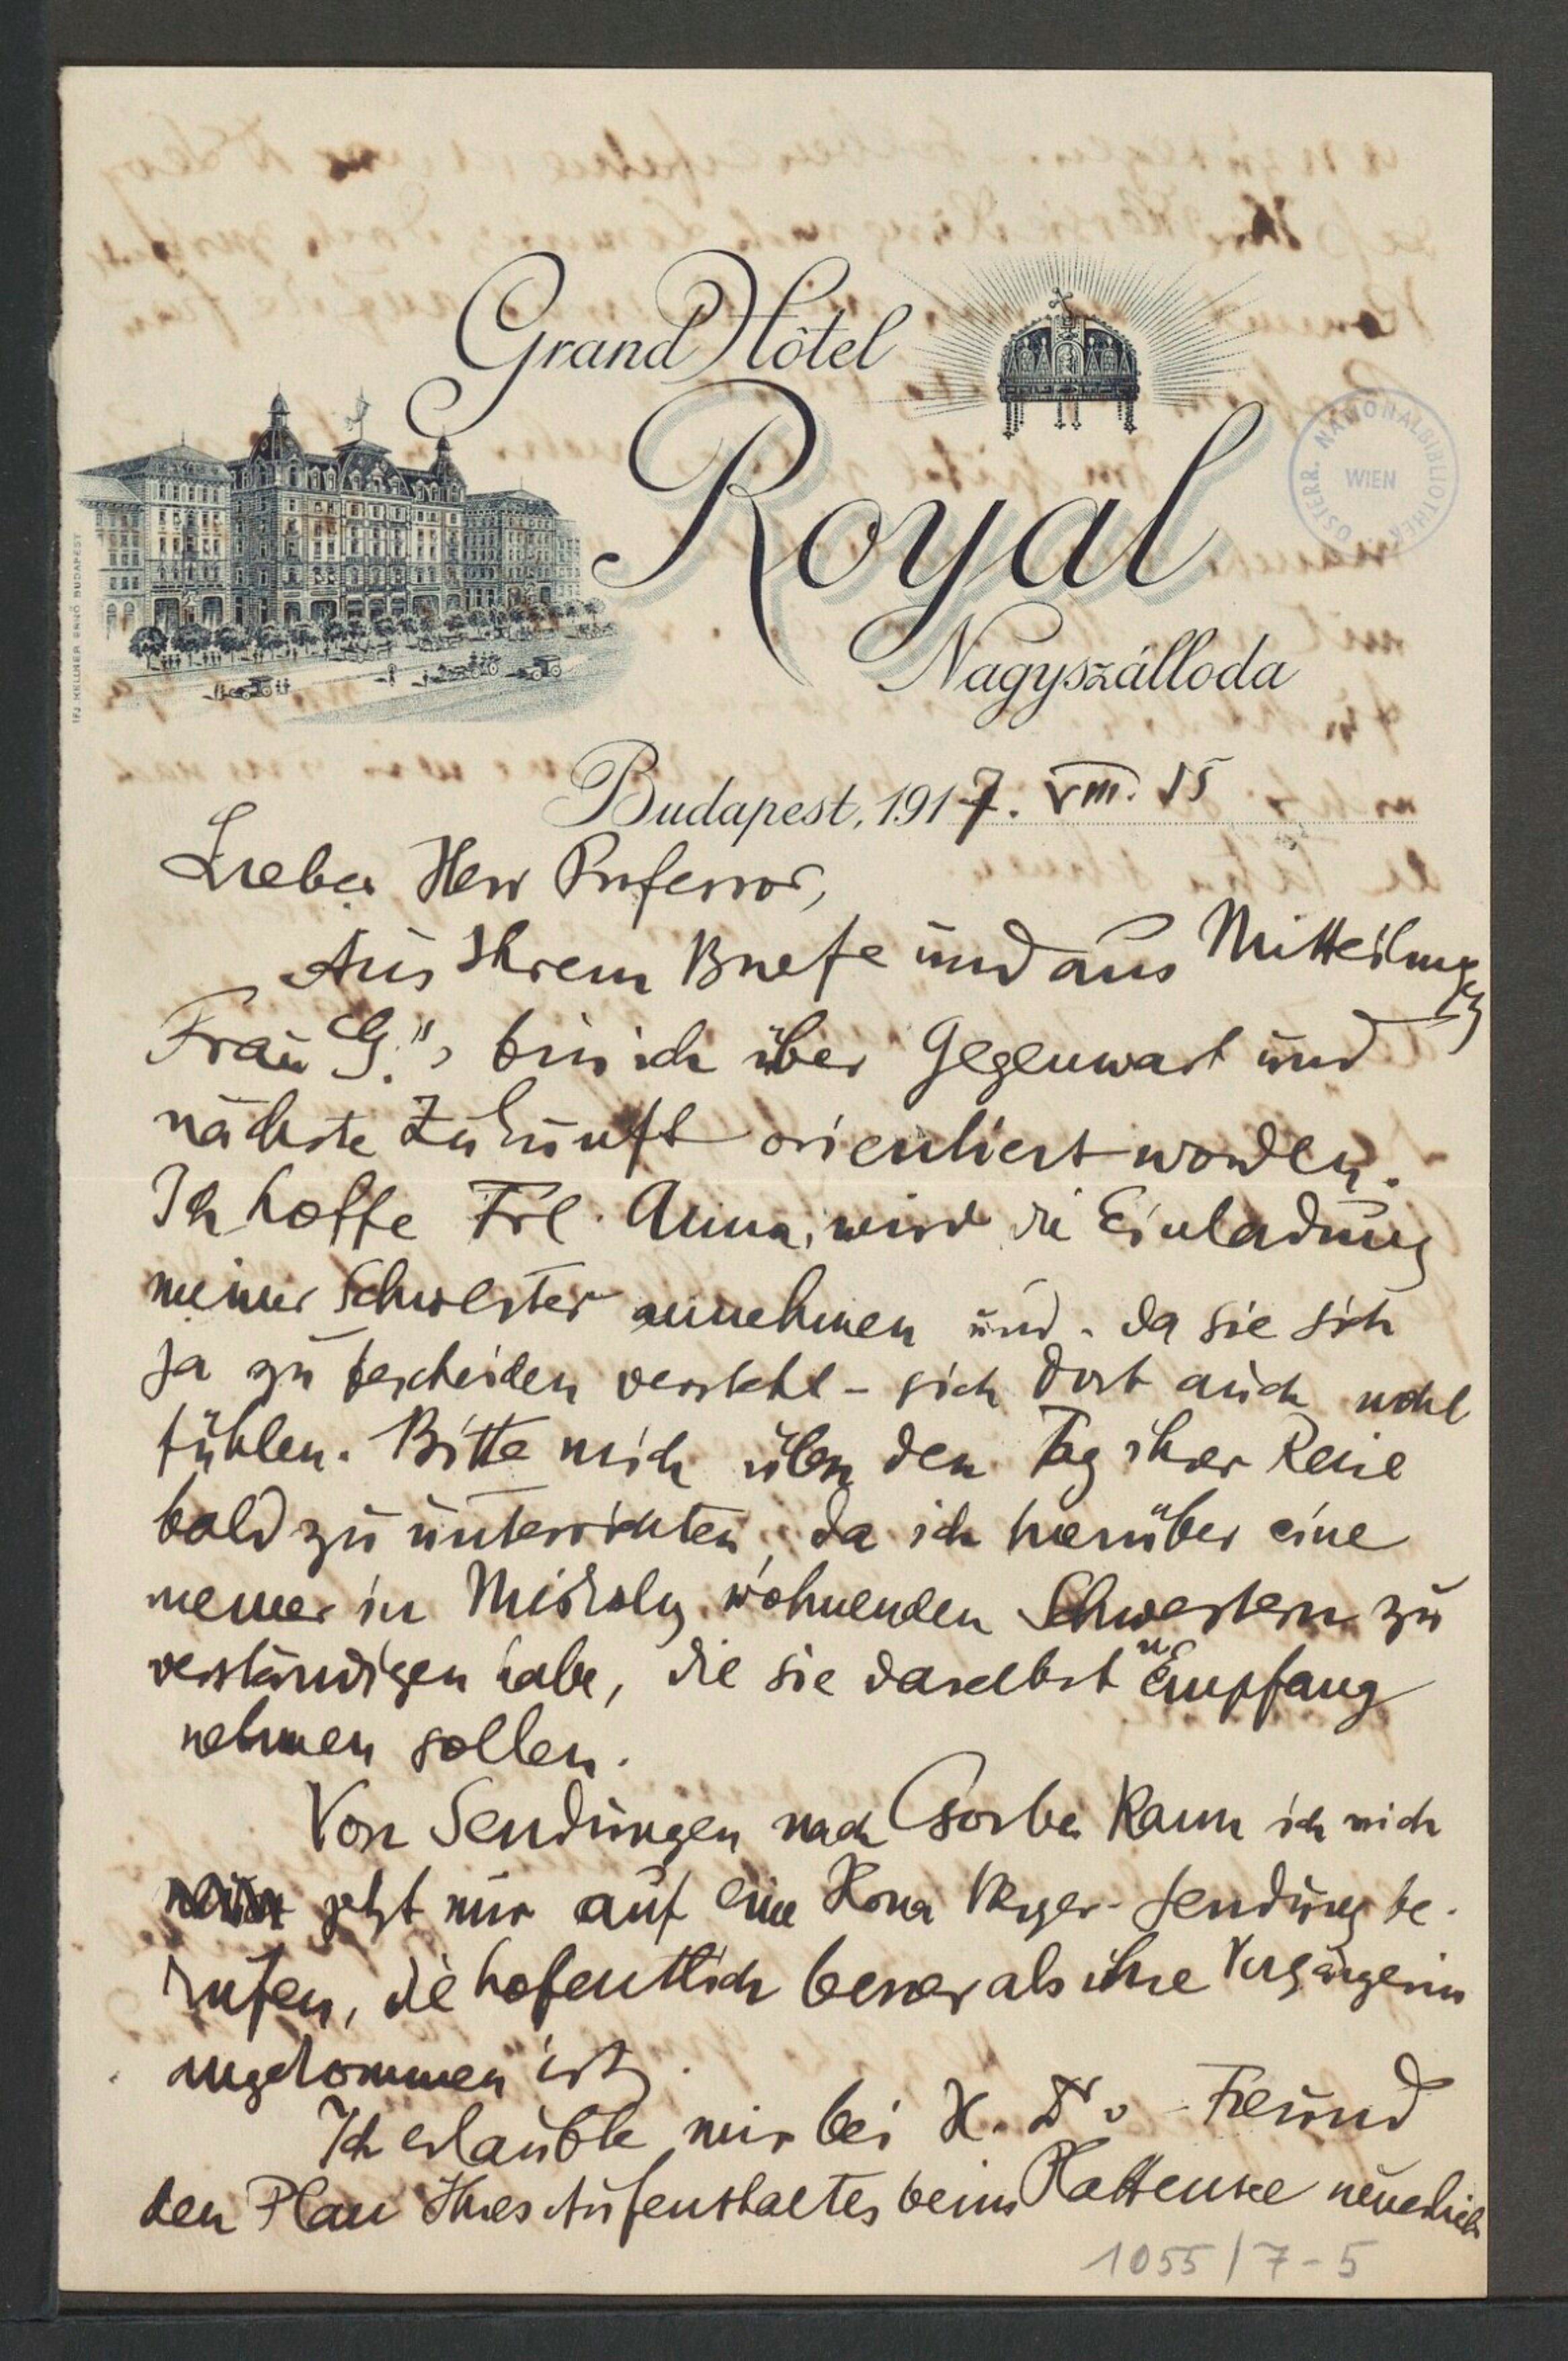 Grand Hôtel
Royal
Nagyszálloda
ÖSTERR. NATIONALBIBLIOTHEK
WIEN
IFJ. KELLNER ERNŐ BUDAPEST
Budapest, 1917. VIII. 15
Lieber Herr Professor,
Aus Ihrem Briefe und aus Mitteilungen
Frau "G."s bin ich über Gegenwart und
nächste Zukunft orientiert worden.
Ich hoffe Frl. Anna, wird die Einladung
meiner Schwester annehmen und - da sie sich
ja zu bescheiden versteht - sich dort auch wohl
fühlen. Bitte mich über den Tag ihrer Reise
bald zu unterrichten, da ich hierüber eine
meiner in Miskolcz wohnenden Schwestern zu
verständigen habe, die sie daselbst in Empfang
nehmen sollen.
Von Sendungen nach Csorba kann ich mich
jetzt nur auf eine Ilona sendung be-
rufen, die hofentlich besser als ihre Vorgängerin
angekommen ist.
Ich erlaubte mir bei H. Dr v. Freund
den Plan Ihres Aufenthaltes beim Plattensee neuerlich
1055/7-5